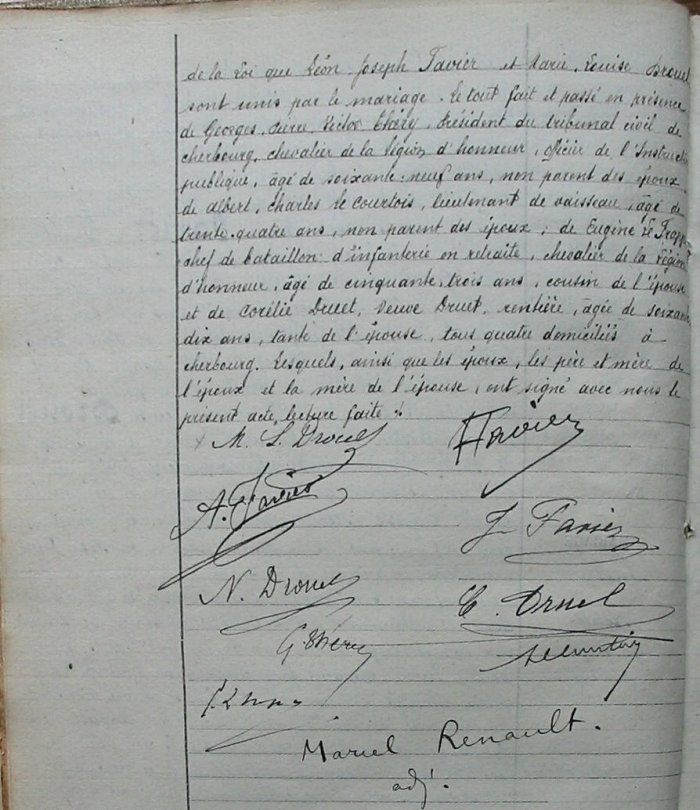 de la Loi que Léon Joseph Favier et Marie, Louise Drouet
sont unis par le mariage. Le tout fait et passé en présence
de Georges, Pierre, Victor Théry, Président du tribunal civil de
cherbourg, chevalier de la légion d'honneur, officier de l'Instructi
publique, âgé de soixante-neuf ans, non parent des époux,
de Albert, Charles Le Courtois, lieutenant de vaisseau, âgé de
trente-quatre ans, non parent des époux; de Eugène Le Frapp
chef de bataillon d'infanterie en retraite, chevalier de la Légion
d'honneur, âgé de cinquante-trois ans, cousin de l'épouse
et de Druet, Veuve Druet, rentière, âgée de soixante
dix ans, tante de l'épouse, tous quatre domiciliés à
cherbourg. Lesquels, ainsi que les époux, les père et mère de
l'époux et la mère de l'épouse, ont signé avec nous le
présent acte, lecture faite ./.
M. L. Drouet Favier
A. Favier J. Favier
N. Drouet C. Druel
G. Théry
Marcel Renault.
adj.